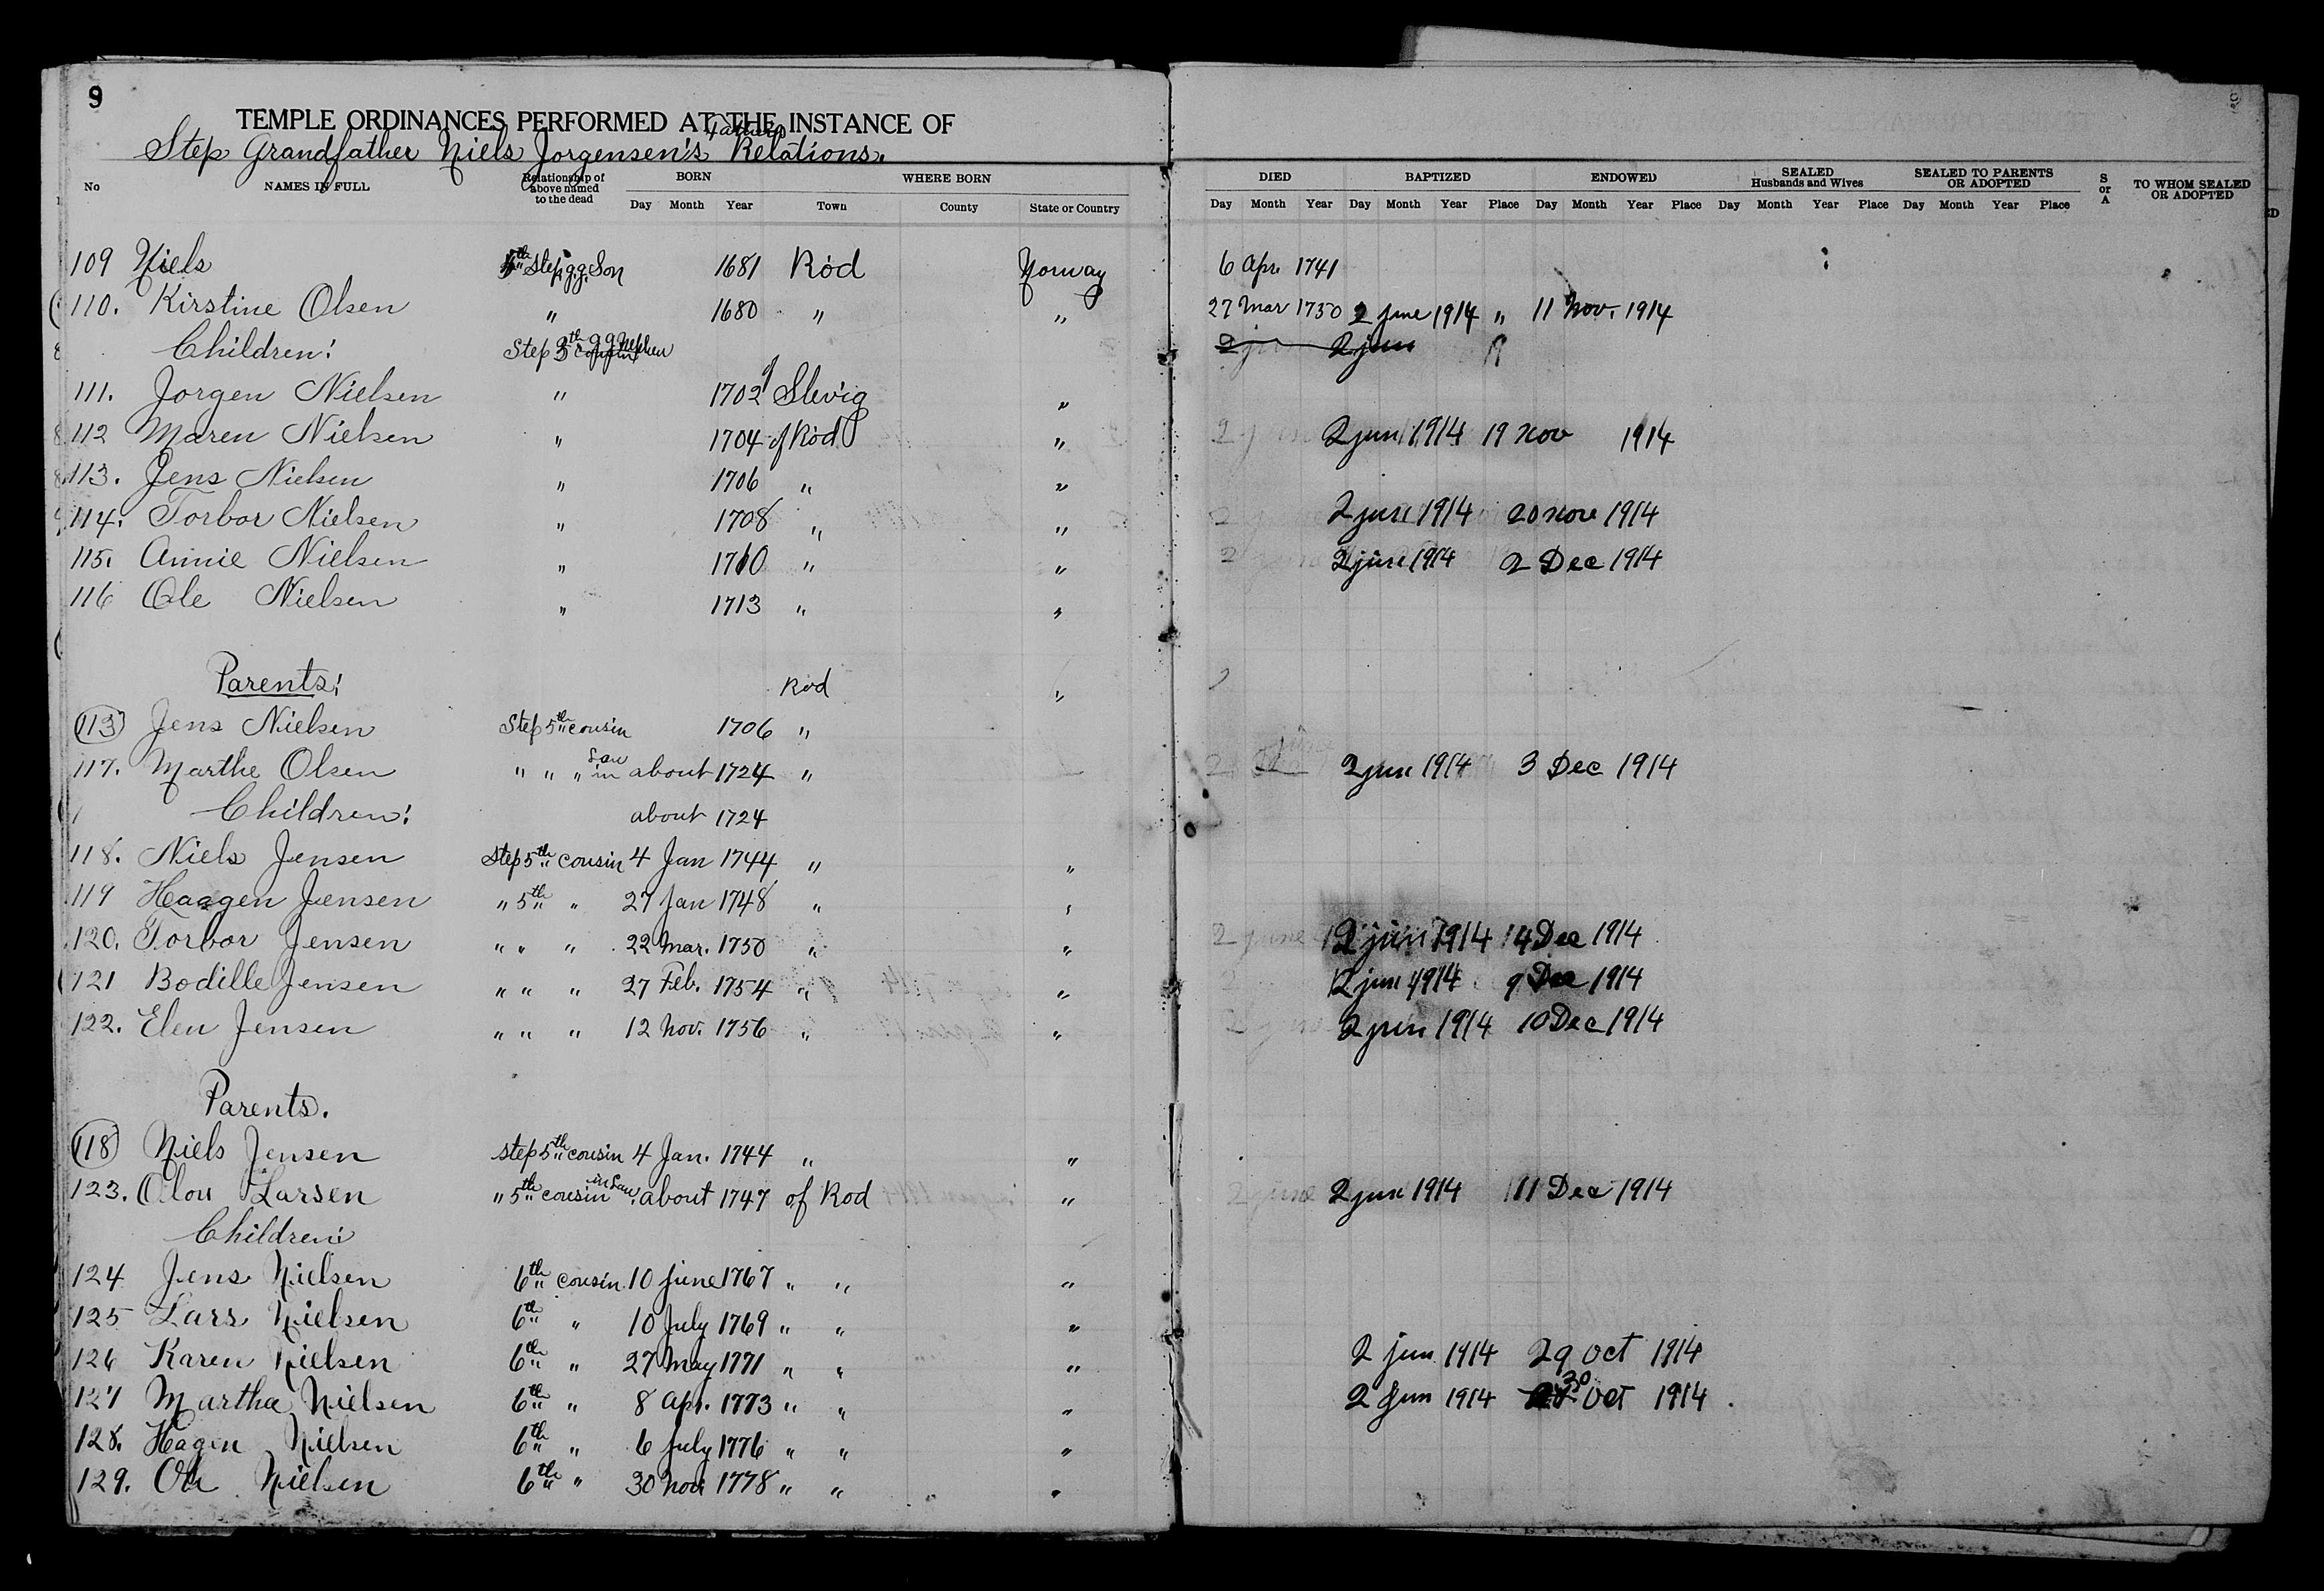 9
TEMPLE ORDINANCES PERFORMED AT THE INSTANCE OF
Step Grandfather Niels Jorgensen's Father's Relations.
No NAMES IN FULL Relationship of above named to the dead BORN Day Month Year WHERE BORN Town County State or Country DIED Day Month Year BAPTIZED Day Month Year Place ENDOWED Day Month Year Place SEALED Husbands and Wives Day Month Year Place SEALED TO PARENTS OR ADOPTED Day Month Year Place S or A TO WHOM SEALED OR ADOPTED
109 Niels Step g.g. Son 1681 Rod Norway 6 Apr. 1741
110. Kirstine Olsen " 1680 " " 27 Mar 1750 2 june 1914 " 11 Nov. 1914
Children: Step 5th 2 jun
111. Jorgen Nielsen " 1702 of Slevig "
112 Maren Nielsen " 1704 of Rod " 2 jun 1914 19 Nov 1914
113. Jens Nielsen " 1706 " "
114. Torbor Nielsen " 1708 " " 2 june 1914 20 Nov 1914
115. Annie Nielsen " 1710 " " 2 june 1914 2 Dec 1914
116 Ole Nielsen " 1713 " "
Parents: Rod "
113 Jens Nielsen Step 5th cousin 1706 "
117. Marthe Olsen " " " in Law about 1724 " 2 june 1914 3 Dec 1914
Children: about 1724
118. Niels Jensen Step 5th cousin 4 Jan 1744 " "
119 Haagen Jensen " 5th " 27 Jan 1748 " "
120. Torbor Jensen " " " 22 Mar. 1750 " " 2 june 1914 14 Dec 1914
121 Bodille Jensen " " " 27 Feb. 1754 " " 2 jun 1914 9 Dec 1914
122. Elen Jensen " " " 12 Nov. 1756 " " 2 jun 1914 10 Dec 1914
Parents.
118 Niels Jensen step 5th cousin 4 Jan. 1744 " "
123. Olou Larsen " 5th cousin in Law about 1747 of Rod " 2 june 2 june 1914 11 Dec 1914
Children:
124 Jens Nielsen 6th cousin 10 June 1767 " " "
125 Lars Nielsen 6th " 10 July 1769 " " "
126 Karen Nielsen 6th " 27 May 1771 " " " 2 jun 1914 29 Oct 1914
127 Martha Nielsen 6th " 8 Apr. 1773 " " " 2 Jun 1914 30 Oct 1914
128. Hagen Nielsen 6th " 6 July 1776 " " "
129. Ole Nielsen 6th " 30 Nov 1778 " " "